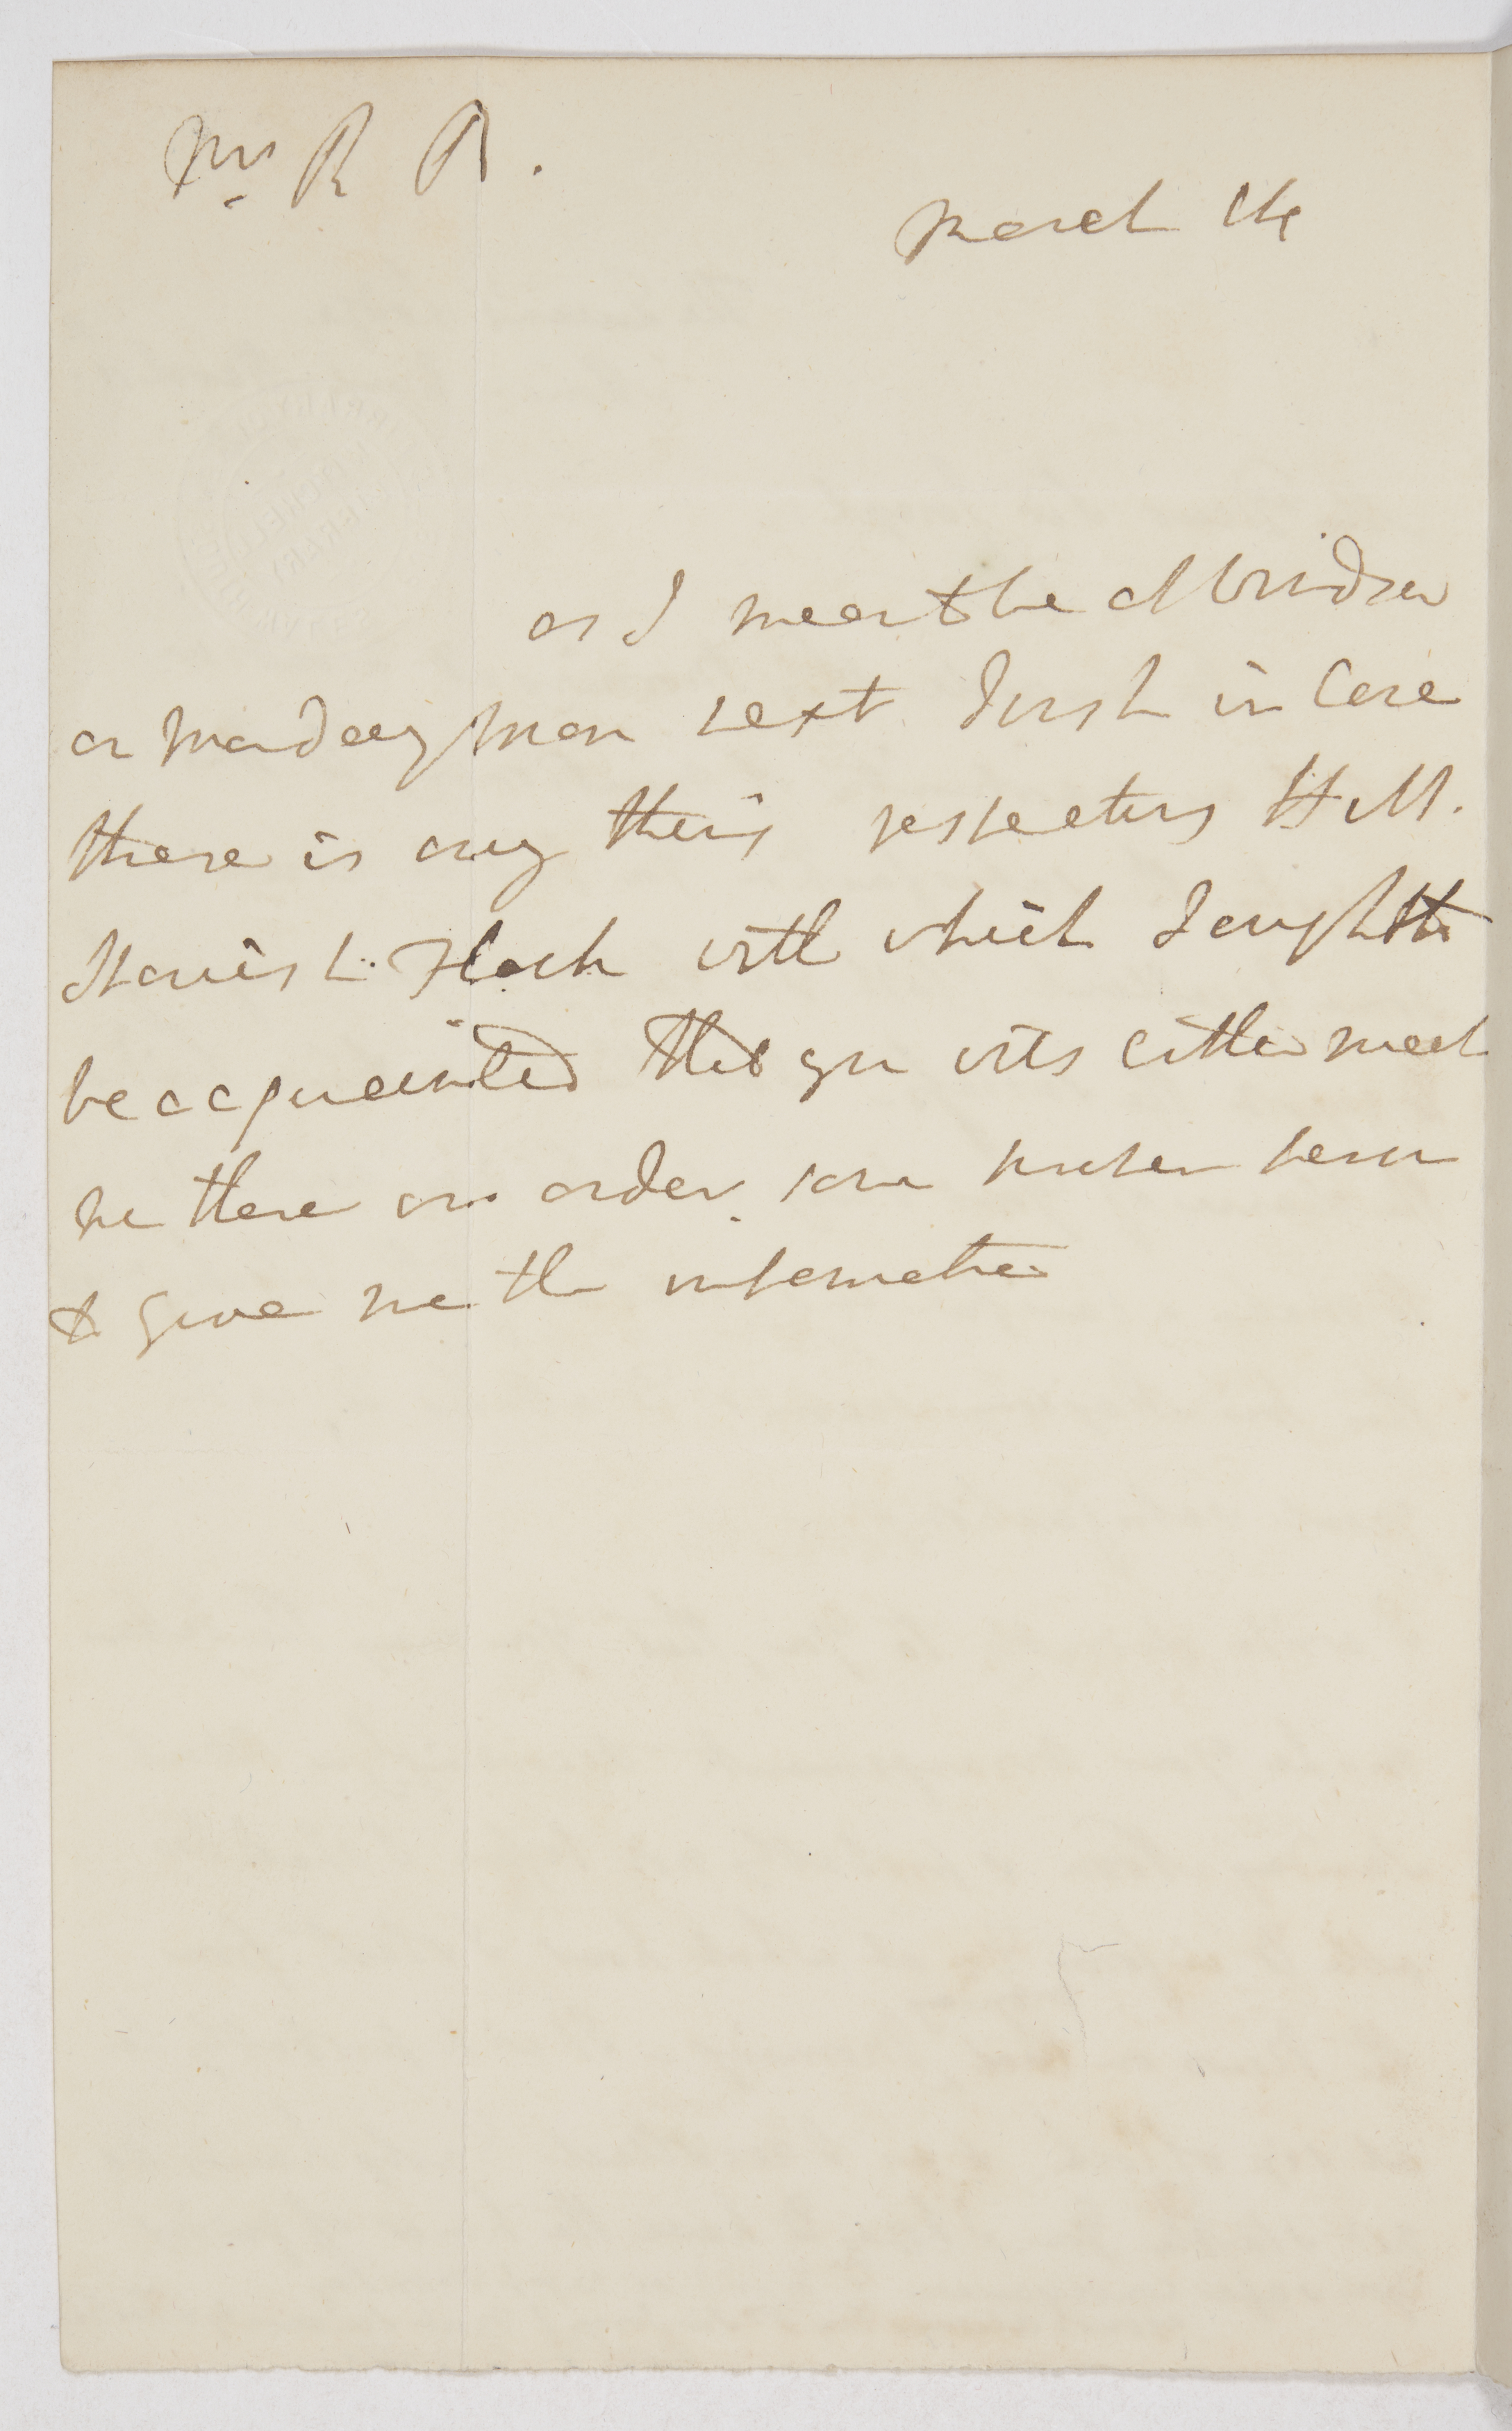 Mr. R R.
March 14
as I mean to be at Windsor
on monday mon next I wish in Case
there is any thing respecting H M.
Spanish Flock with which I ought to
be acquainted that you will either meet
me there or order some proper person
to give me the information